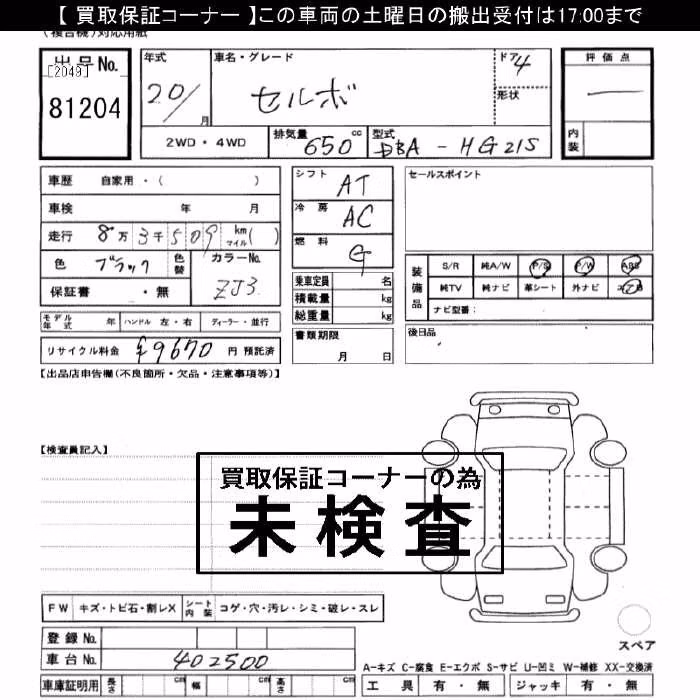 【 買取保証コーナー 】この車両の土曜日の搬出受付は17:00まで
(複合機)対応用紙
出品No.
[2049]
81204
年式
20/
月
車名・グレード
セルボ
ドア
4
形状
2WD・4WD
排気量
650
cc
型式
DBA - HG21S
評価点
—
内装
車歴 自家用・( )
車検 年 月
走行 8万3千509 km マイル( )
色 ブラック
色替
カラーNo.
ZJ3
保証書 ・無
モデル年式 年 ハンドル 左・右 ディーラー・並行
リサイクル料金 ¥9670 円 預託済
シフト AT
冷房 AC
燃料 G
乗車定員 名
積載量 kg
総重量 kg
書類期限
月 日
セールスポイント
装備品
S/R 純A/W P/S P/W ABS
純TV 純ナビ 革シート 外ナビ エアB
ナビ型番:
後日品
【出品店申告欄(不良箇所・欠品・注意事項等)】
【検査員記入】
買取保証コーナーの為
未検査
FW キズ・トビ石・割レX シート内装 コゲ・穴・汚レ・シミ・破レ・スレ
登録No.
車台No. 402500
車庫証明用 長さ cm 幅 cm 高さ cm
スペア
A-キズ C-腐食 E-エクボ S-サビ U-凹ミ W-補修 XX-交換済
工具 有・無 ジャッキ 有・無